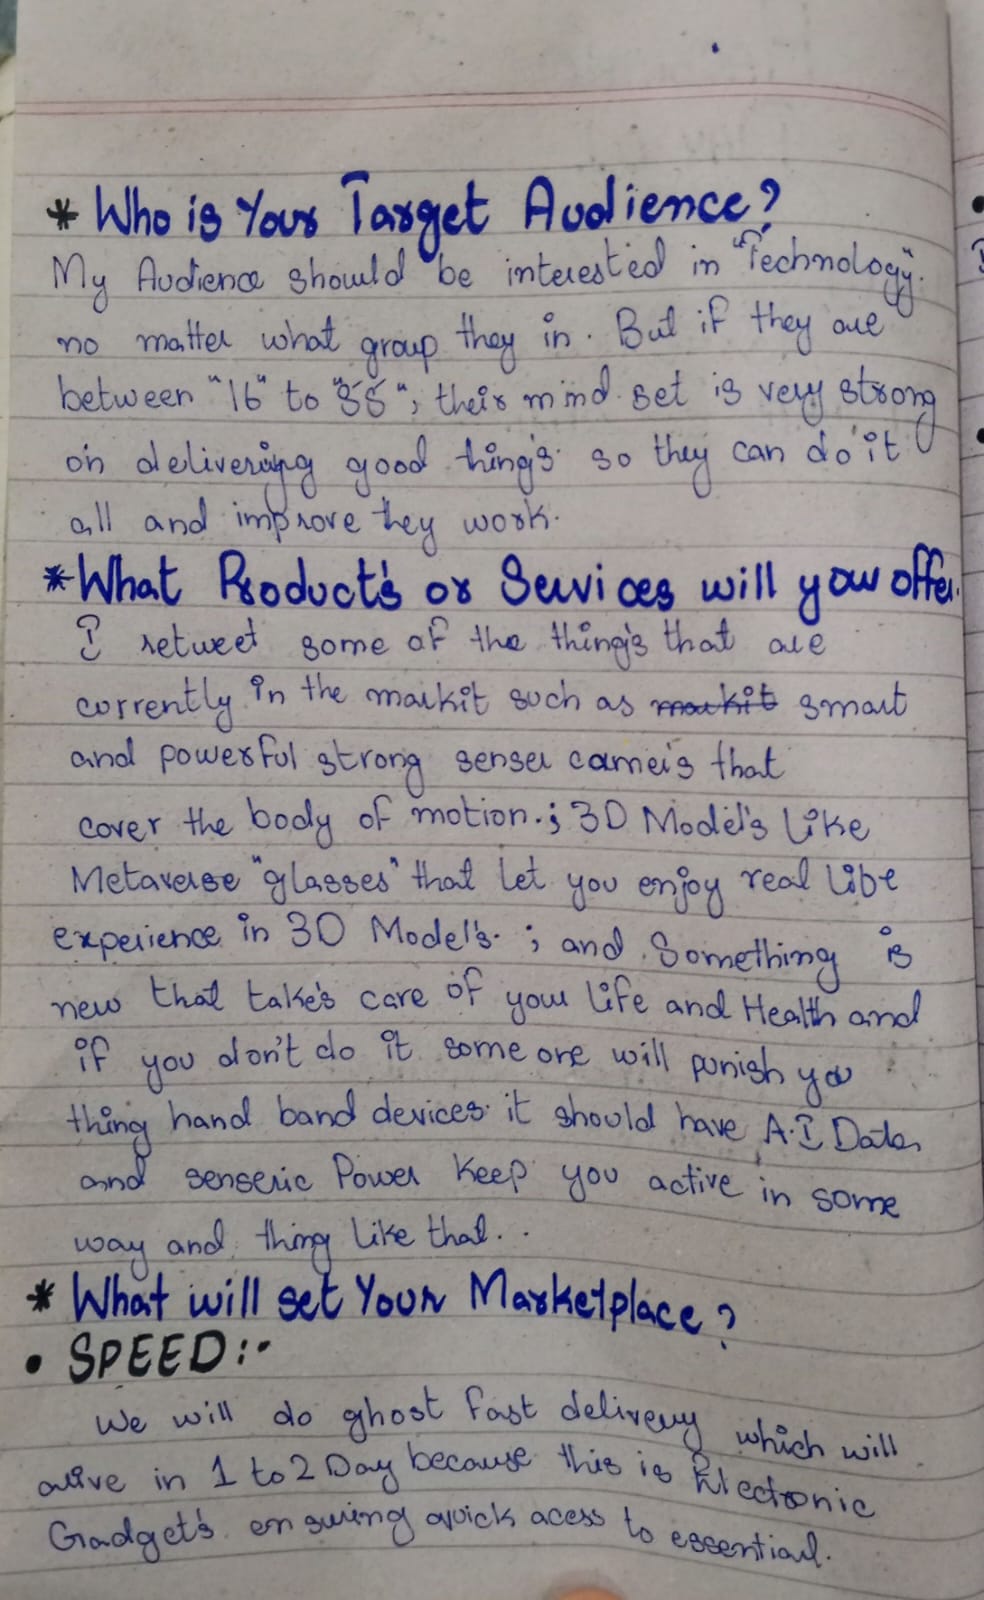 * Who is Your Target Audience?
My Audience should be interested in "Technology".
no matter what group they in. But if they are
between "16" to "35", their mind set is very strong
on delivering good thing's so they can do it
all and improve they work.
*What Product's or Services will your offer.
I retweet some of the thing's that are
currently in the markit such as markit smart
and powerful strong senser cameis that
cover the body of motion.; 3D Model's Like
Metaverse "glasses" that let you enjoy real libe
experience in 3D Model's. ; and Something is
new that take's care of your life and Health and
if you don't do it some one will punish you
thing hand band devices. it should have A.I Data
and senseric Power Keep you active in some
way and thing like that...
* What will set Your Marketplace?
• SPEED:-
We will do ghost fast delivery which will
arive in 1 to 2 Day because this is Electronic
Gadget's ensuring quick acess to essential.